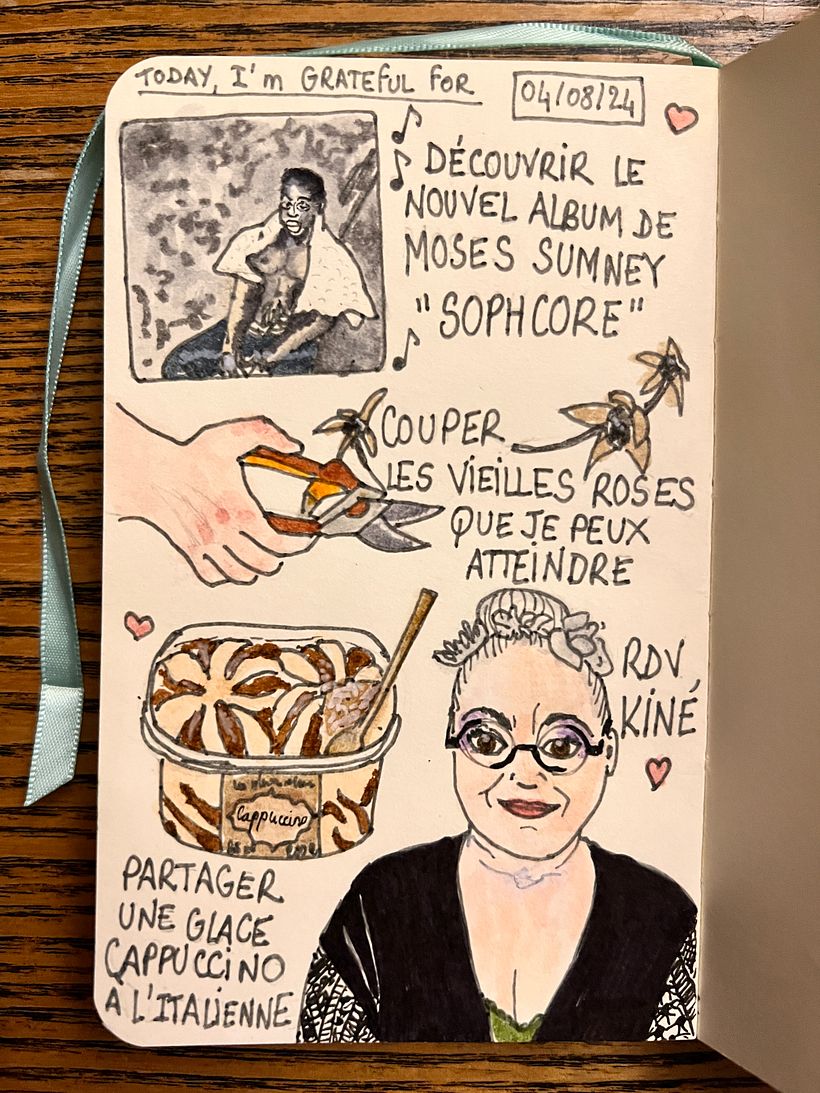 TODAY, I'm GRATEFUL FOR
04/08/24
DÉCOUVRIR LE
NOUVEL ALBUM DE
MOSES SUMNEY
"SOPHCORE"
COUPER
LES VIEILLES ROSES
QUE JE PEUX
ATTEINDRE
RDV
KINÉ
Cappuccino
PARTAGER
UNE GLACE
CAPPUCCINO
A L'ITALIENNE